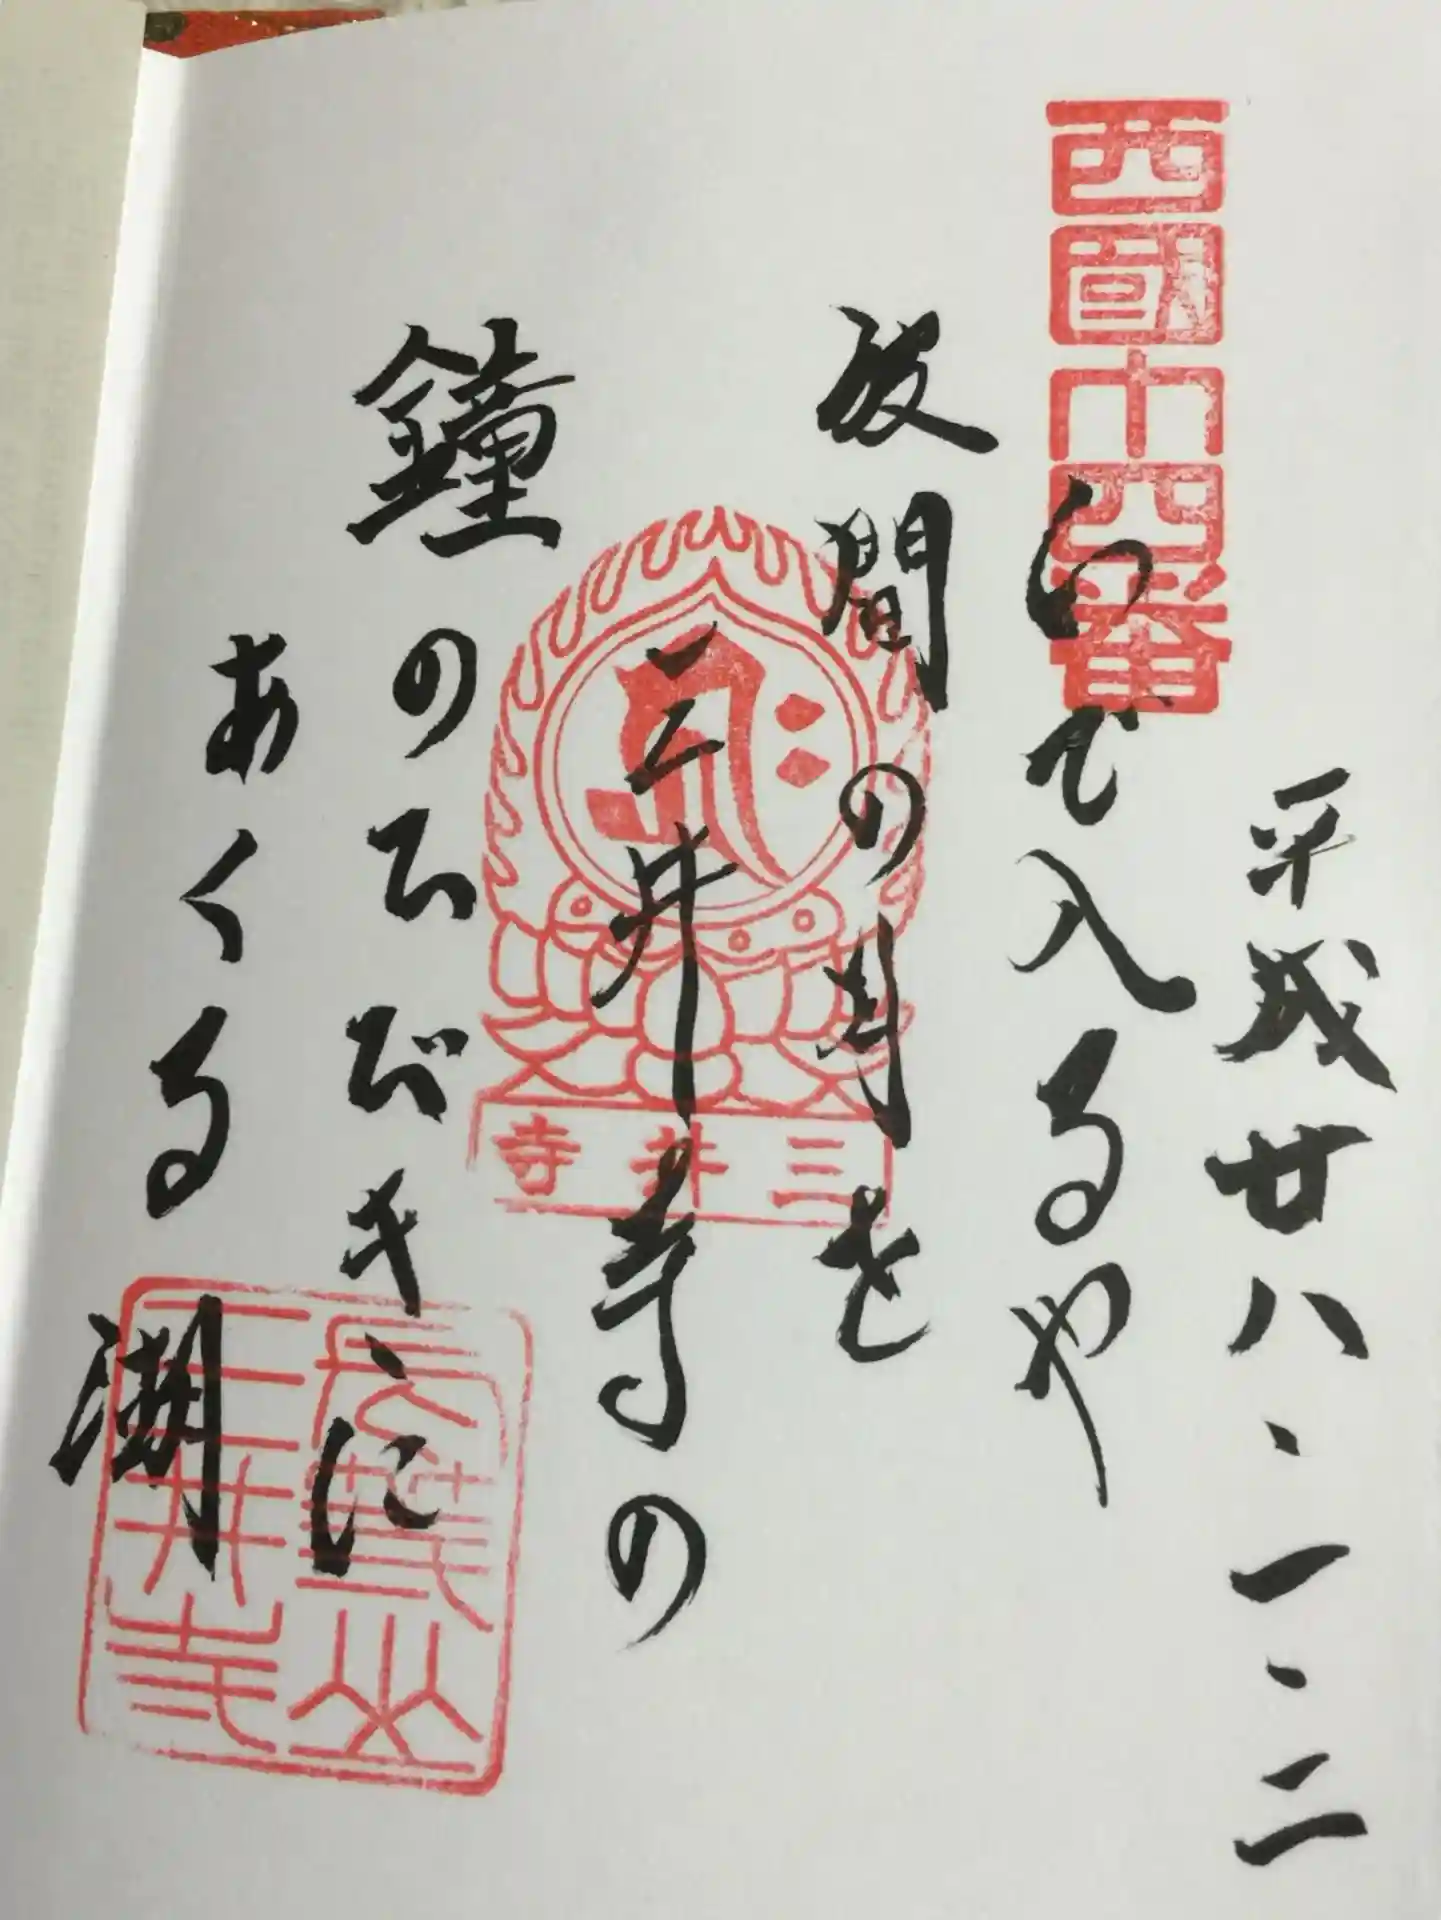 平成廿八、一、二
西國十四番
いで入るや
波間の月を
三井寺の
鐘のひびきに
あくる湖
三井寺
三井寺